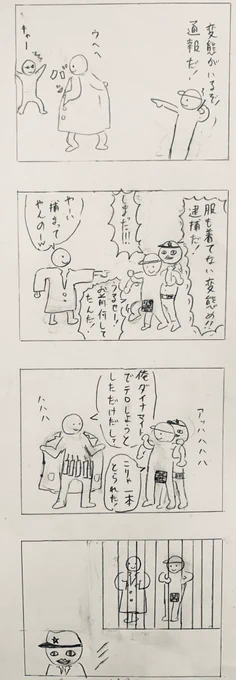 変態がいるぞ!
通報だ!
ウヘヘ
キャー
服も着てない変態め!!
逮捕だ!
しまった!!!
うるせー!
お前何して
たんだ!
やーい
捕まって
やんのーw
アッハハハハ
俺ダイナマイト
でテロしようと
しただけだしw
こりゃ一本
とられた!
ハハハ